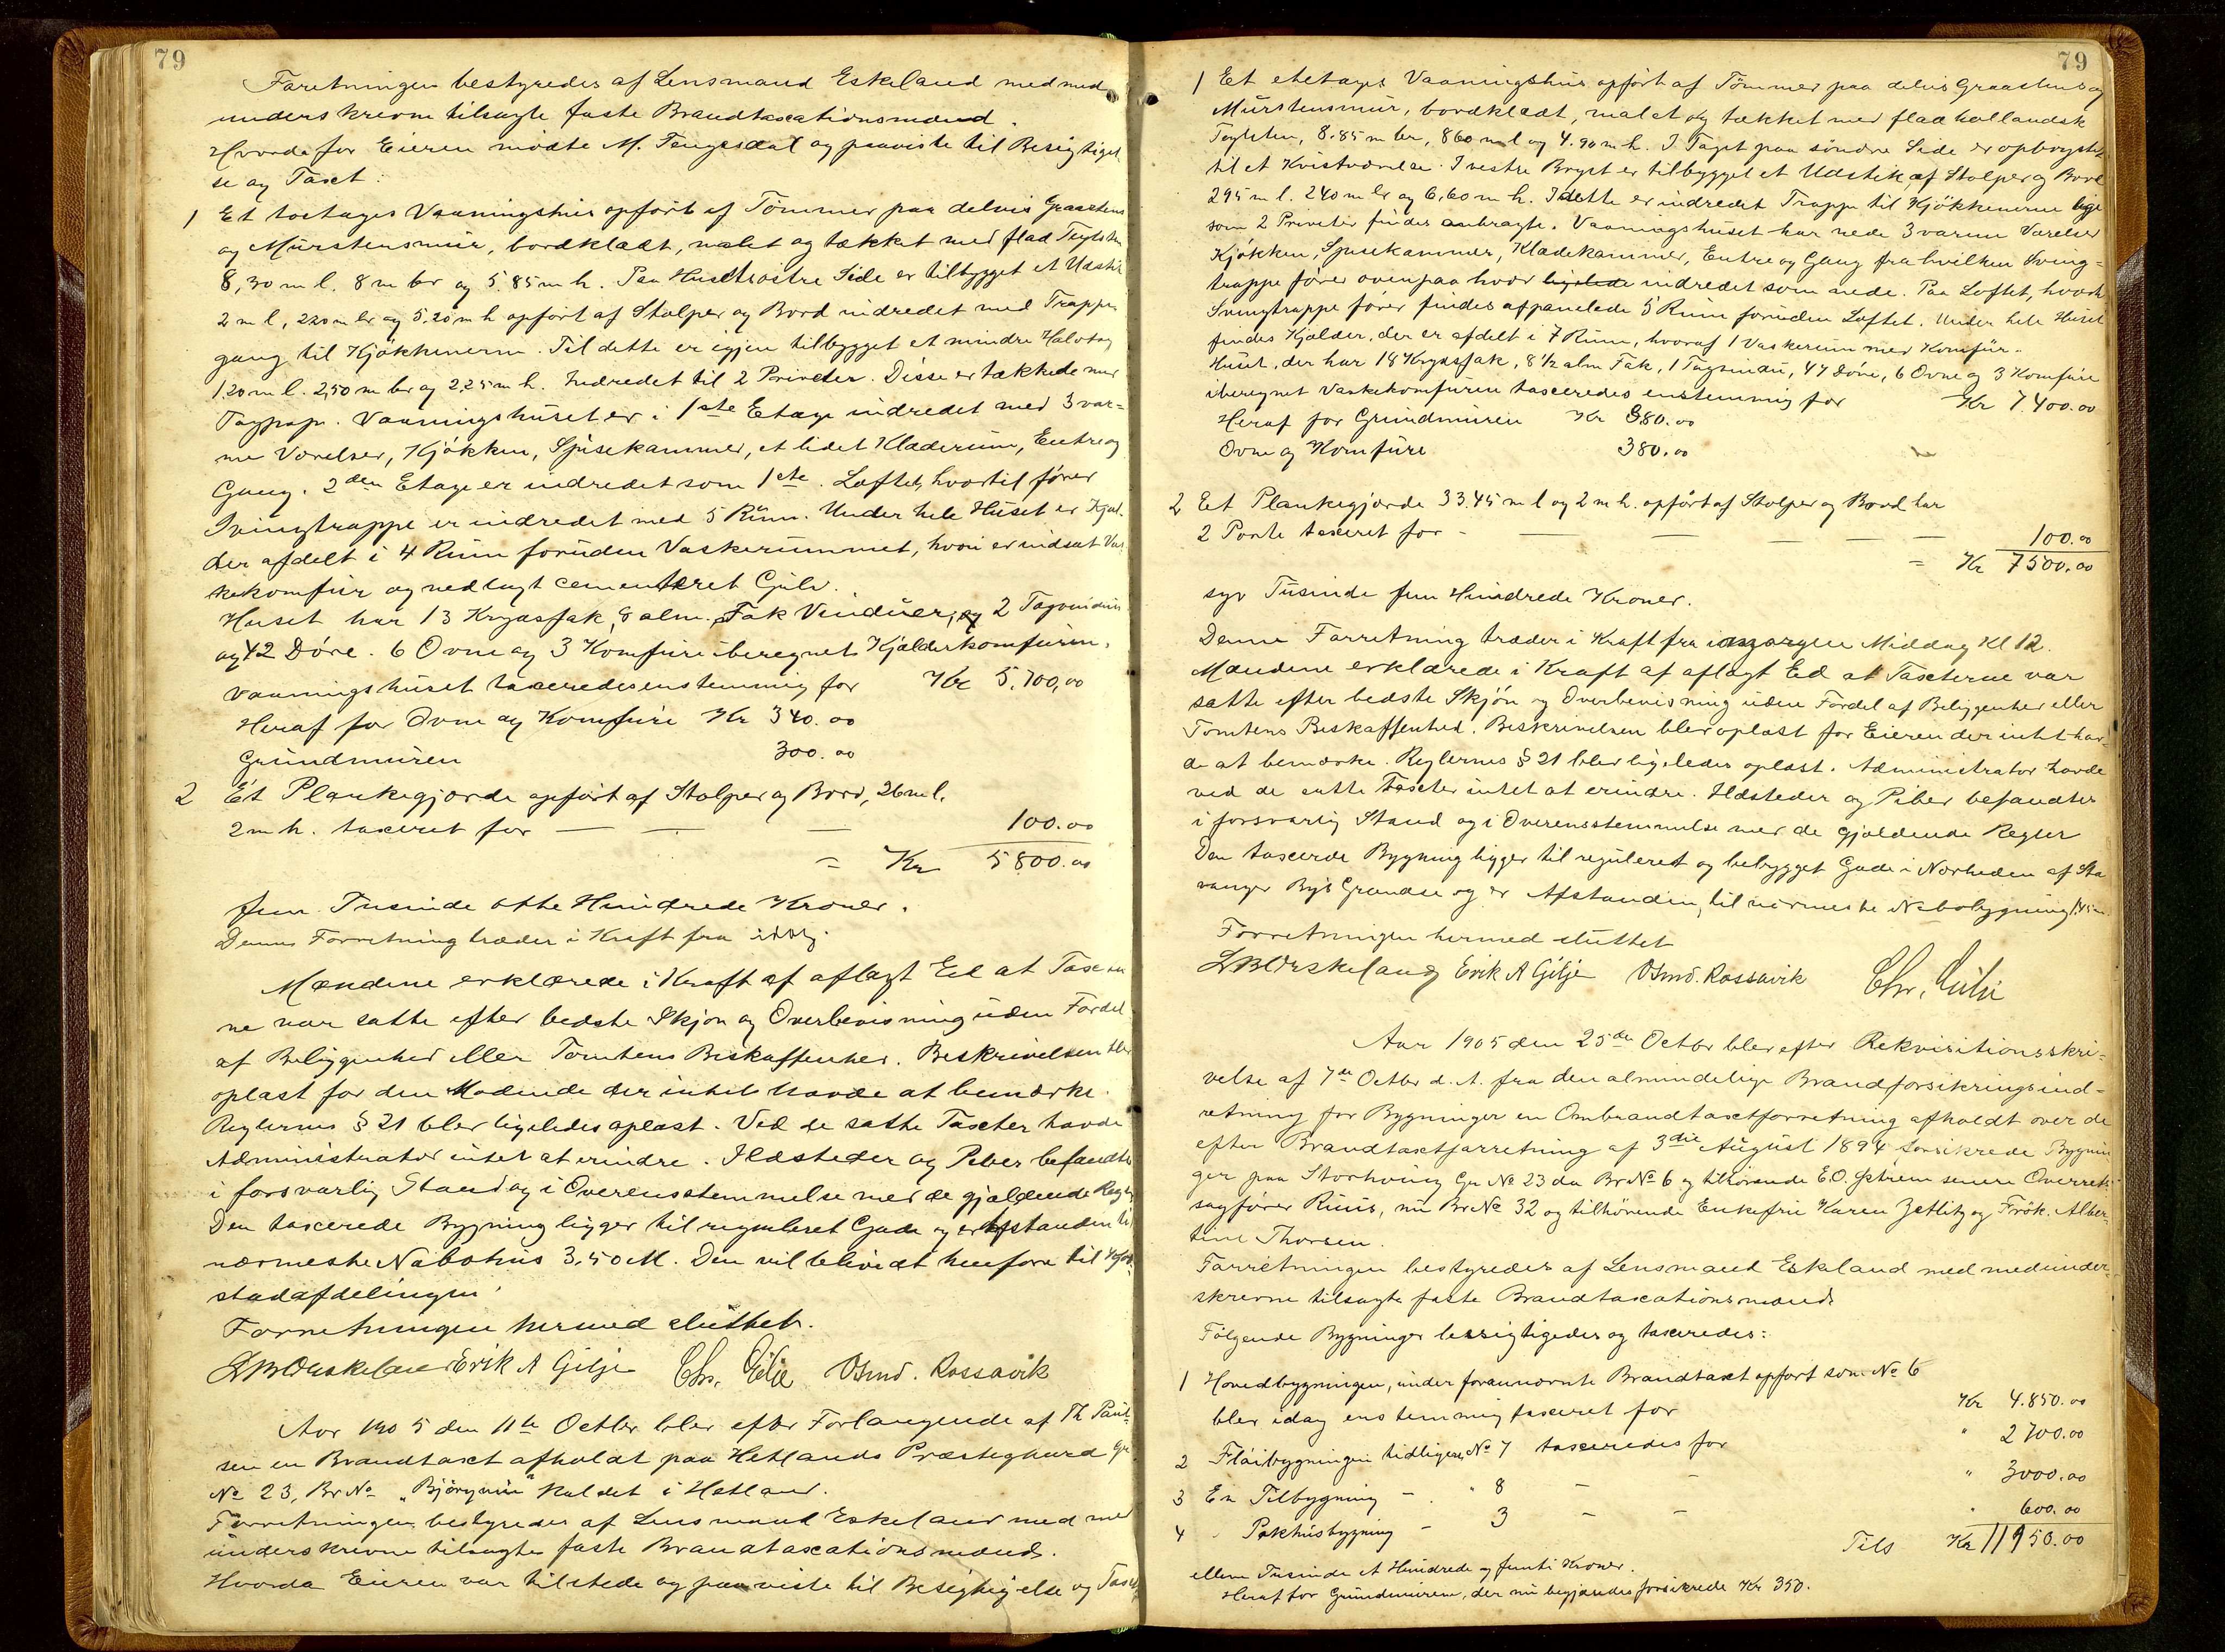 79
Forretningen bestyredes af Lensmand Eskeland med med
underskrevne tilsagte faste Brandtaxationsmænd.
Hvorda for Eieren mødte M. Tengesdal og paaviste til Besigtigel
se og Taxt:
1 Et toetages Vaaningshus opført af Tömmer paa delvis Graastens
og Murstensmur, bordklædt, malet og tækket med flad Teglsten
8,30 m l. 8 m br og 5.85 m h. Paa Husets østre Side er tilbygget et Udstik
2 m l, 220 m br og 5.20 m h opført af Stolper og Bord indredet med Trappe
gang til Kjøkkenerne. Til dette er igjen tilbygget et mindre Halvtag
120 m l. 2,50 m br og 2.25 m h. Indredet til 2 Priveter. Disse er tækkede med
Tagpap. Vaaningshuset er i 1ste Etage indredet med 3 var=
me Værelser, Kjøkken, Spisekammer, et lidet Klæderum, Entre og
Gang. 2den Etage er indredet som 1ste. Loftet, hvortil fører
Svingtrappe er indredet med 5 Rum. Under hele Huset er Kjæl-
der afdelt i 4 Rum foruden Vaskerummet, hvori er indsat Vas
kekomfur og nedlagt cementeret Gulv.
Huset har 13 Krydsfak, 8 alm. Fak Vinduer, og 2 Tagvinduer
og 42 Døre. 6 Ovne og 3 Komfure iberegnet Kjælderkomfuren.
Vaaningshuset taxeredes enstemmig for Kr 5,700,00
Heraf for Ovne og Komfure Kr 340.00
Grundmuren 300.00
2 Et Plankegjærde opført af Stolper og Bord, 26 m l.
2 m h. taxeret for — — — 100.00
= Kr 5800.00
fem Tusinde otte Hundrede Kroner.
Denne Forretning træder i Kraft fra idag.
Mændene erklærede i Kraft af aflagt Ed at Taxter
ne var satte efter bedste Skjøn og Overbevisning uden Fordel
af Beliggenhed eller Tomtens Beskaffenhed. Beskrivelsen blev
oplæst for den Mødende der intet havde at bemærke.
Reglernes § 21 blev ligeledes oplæst. Ved de satte Taxter havde
Administrator intet at erindre. Ildsteder og Piber befandtes
i forsvarlig Stand og i Overensstemmelse med de gjældende Regler
Den taxerede Bygning ligger til reguleret Gade og er Afstanden til
nærmeste Nabohus 3,50 M. Den vil blive at henføre til
stadafdelingen.
Forretningen hermed sluttet.
Erik A Gilje Chr. Gilje Osmd. Rossavik
Aar 1905 den 11te Octbr blev efter Forlangende af Th Paul=
sen en Brandtaxt afholdt paa Hetlands Præstegaard Gr
No 23, Br No „Bjørgvin" kaldet i Hetland.
Forretningen bestyredes af Lensmand Eskeland med med
underskrevne tilsagte faste Brandtaxationsmænd.
Hvorda Eieren var tilstede og paaviste til Besigtigelse og Taxt
79
1 Et etetages Vaaningshus opført af Tømmer paa delvis Graastens og
Murstensmur, bordklædt, malet og tækket med flad hollandsk
Teglsten, 8.85 m br, 860 m l og 4.90 m h. I Taget paa søndre Side er opbrystet
til et Kvistværelse. I vestre Bryst er tilbygget et Udstik af Stolper og Bord
295 m l. 240 m br og 6,60 m h. I dette er indredet Trappe til Kjøkkenerne lige
som 2 Priveter findes anbragte. Vaaningshuset har nede 3 varme Værelser
Kjøkken, Spisekammer, Klædekammer, Entre og Gang fra hvilken Sving=
trappe fører ovenpaa hvor ligelede indredet som nede. Paa Loftet, hvortil
Svingtrappe fører findes afpanelede 5 Rum foruden Loftet. Under hele Huset
findes Kjælder, der er afdelt i 7 Rum, hvoraf 1 Vaskerum med Komfur.
Huset, der har 18 Krydsfak, 8 1/2 alm Fak, 1 Tagvindu, 47 Døre, 6 Ovne og 3 Komfure
iberegnet Vaskekomfuren taxeredes enstemmig for Kr 7.400.00
Heraf for Grundmuren Kr 380.00
Ovne og Komfure 380.00
2 Et Plankegjærde 33.45 m l og 2 m h. opført af Stolper og Bord har
2 Porte taxeret for - — — — — — 100.00
= Kr 7500.00
syv Tusinde fem Hundrede Kroner.
Denne Forretning træder i Kraft fra imorgen Middag Kl 12.
Mændene erklærede i Kraft af aflagt Ed at Taxterne var
satte efter bedste Skjøn og Overbevisning uden Fordel af Beliggenhed eller
Tomtens Beskaffenhed. Beskrivelsen blev oplæst for Eieren der intet hav=
de at bemærke. Reglernes § 21 blev ligeledes oplæst. Administrator havde
ved de satte Taxter intet at erindre. Ildsteder og Piber befandtes
i forsvarlig Stand og i Overensstemmelse med de gjældende Regler
Den taxerede Bygning ligger til reguleret og bebygget Gade i Nærheden af Sta
vanger Bys Grændse og er Afstanden til nærmeste Nabobygning
Forretningen hermed sluttet
Erik A Gilje Osmd. Rossavik Chr. Gilje
Aar 1905 den 25de Octbr blev efter Rekvisitionsskri=
velse af 7de Octbr d. A. fra den almindelige Brandforsikringsind=
retning for Bygninger en Ombrandtaxtforretning afholdt over de
efter Brandtaxtforretning af 3die August 1894 forsikrede Bygnin
ger paa Storhaug Gr No 23 da Br No 6 og tilhørende E.O. senere Overrets
sagfører Ruus, nu Br No 32 og tilhørende Enkefru Karen Jetlitz og Frök. Alber=
tine Thorsen.
Forretningen bestyredes af Lensmand Eskland med medunder=
skrevne tilsagte faste Brandtaxationsmænd.
Følgende Bygninger besigtigedes og taxeredes:
1 Hovedbygningen, under forannævnte Brandtaxt opført som No 6
blev idag enstemmig taxeret for Kr 4.850.00
2 Fløibygningen tidligere No 7 taxeredes for " 2700.00
3 En Tilbygning - " 8 - - " 3000.00
4 " Pakhusbygning - 3 - - " 600.00
Tils Kr 11150.00
elleve Tusinde et Hundrede og femti Kroner.
Heraf for Grundmurene, der nu begjæredes forsikrede Kr 350.